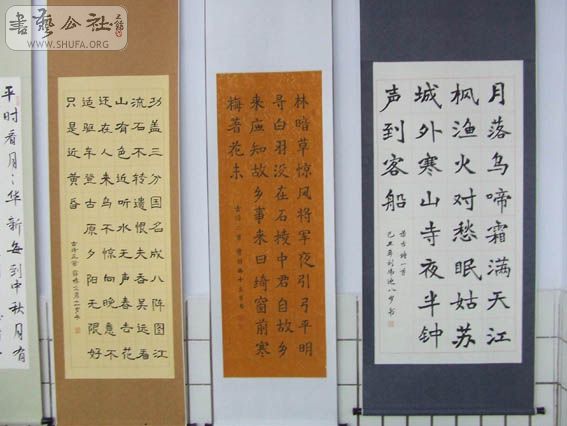 書艺公社
WWW.SHUFA.ORG
月落乌啼霜满天江
枫渔火对愁眠姑苏
城外寒山寺夜半钟
声到客船
古诗一首
林暗草惊风将军夜引弓平明
寻白羽没在石棱中君自故乡
来应知故乡事来日绮窗前寒
梅著花未
古诗二首
功盖三分国名成八阵图江
流石不转遗恨失吞吴远看
山有色近听水无声春去花
还在人来鸟不惊向晚意不
适驱车登古原夕阳无限好
只是近黄昏
古诗三首
平时看月〻华新每到中秋月有